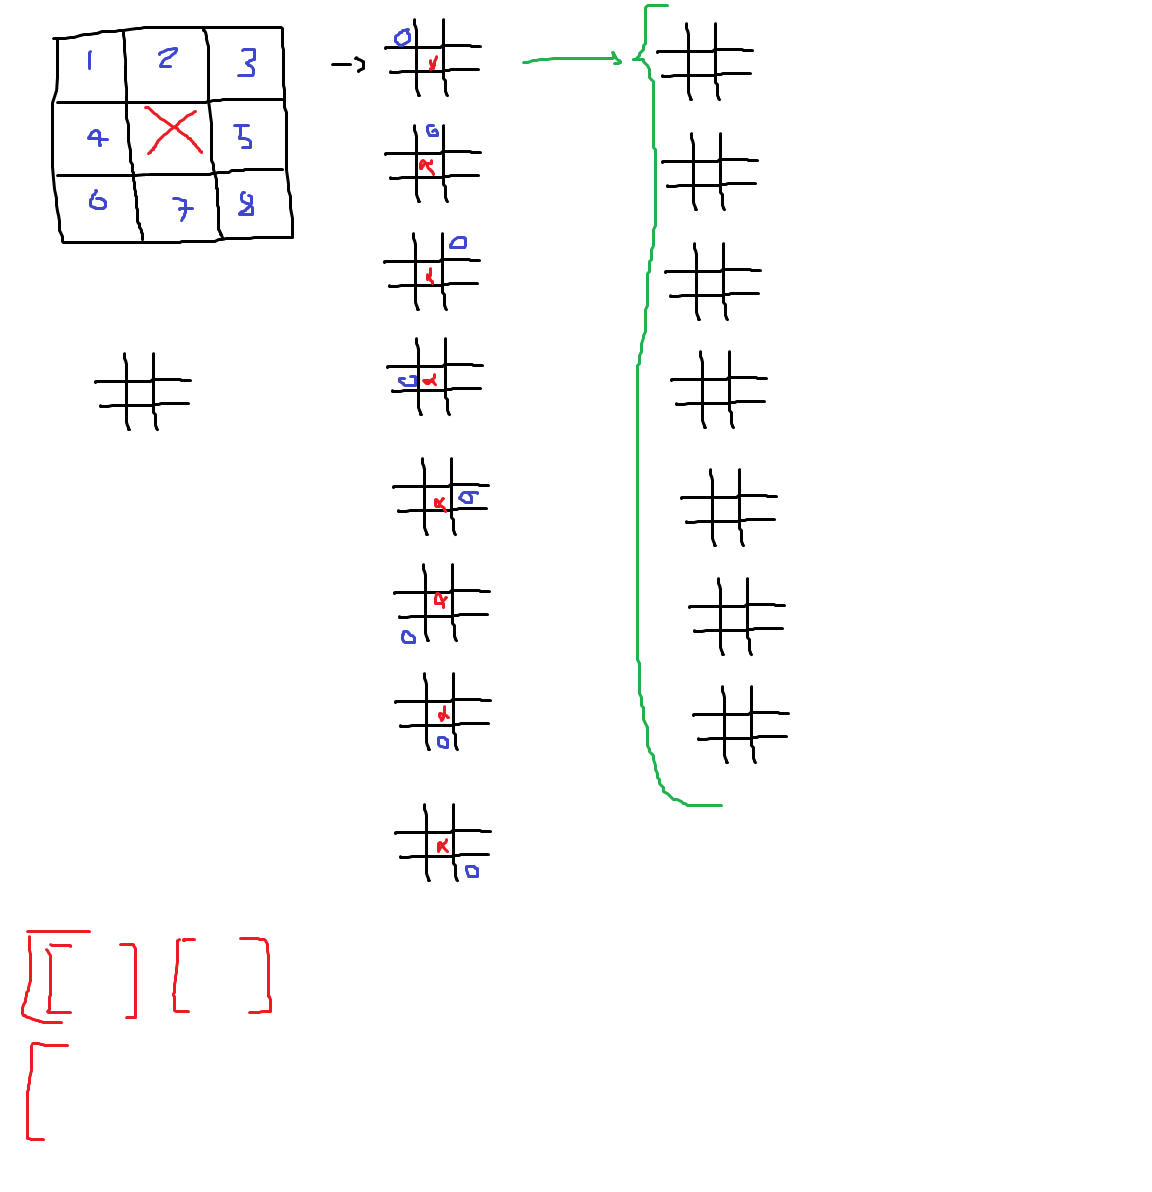 1 2 3
4 X 5
6 7 8
O
X
O
X
O
X
O X
X O
X
O
X
O
X
O